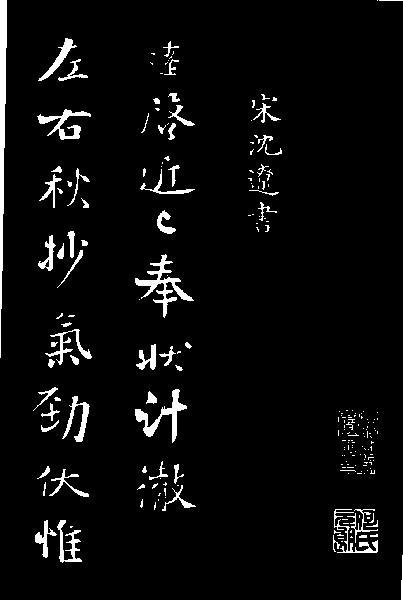 宋沈遼書
遼啓近〻奉狀計徹
左右秋抄氣勁伏惟